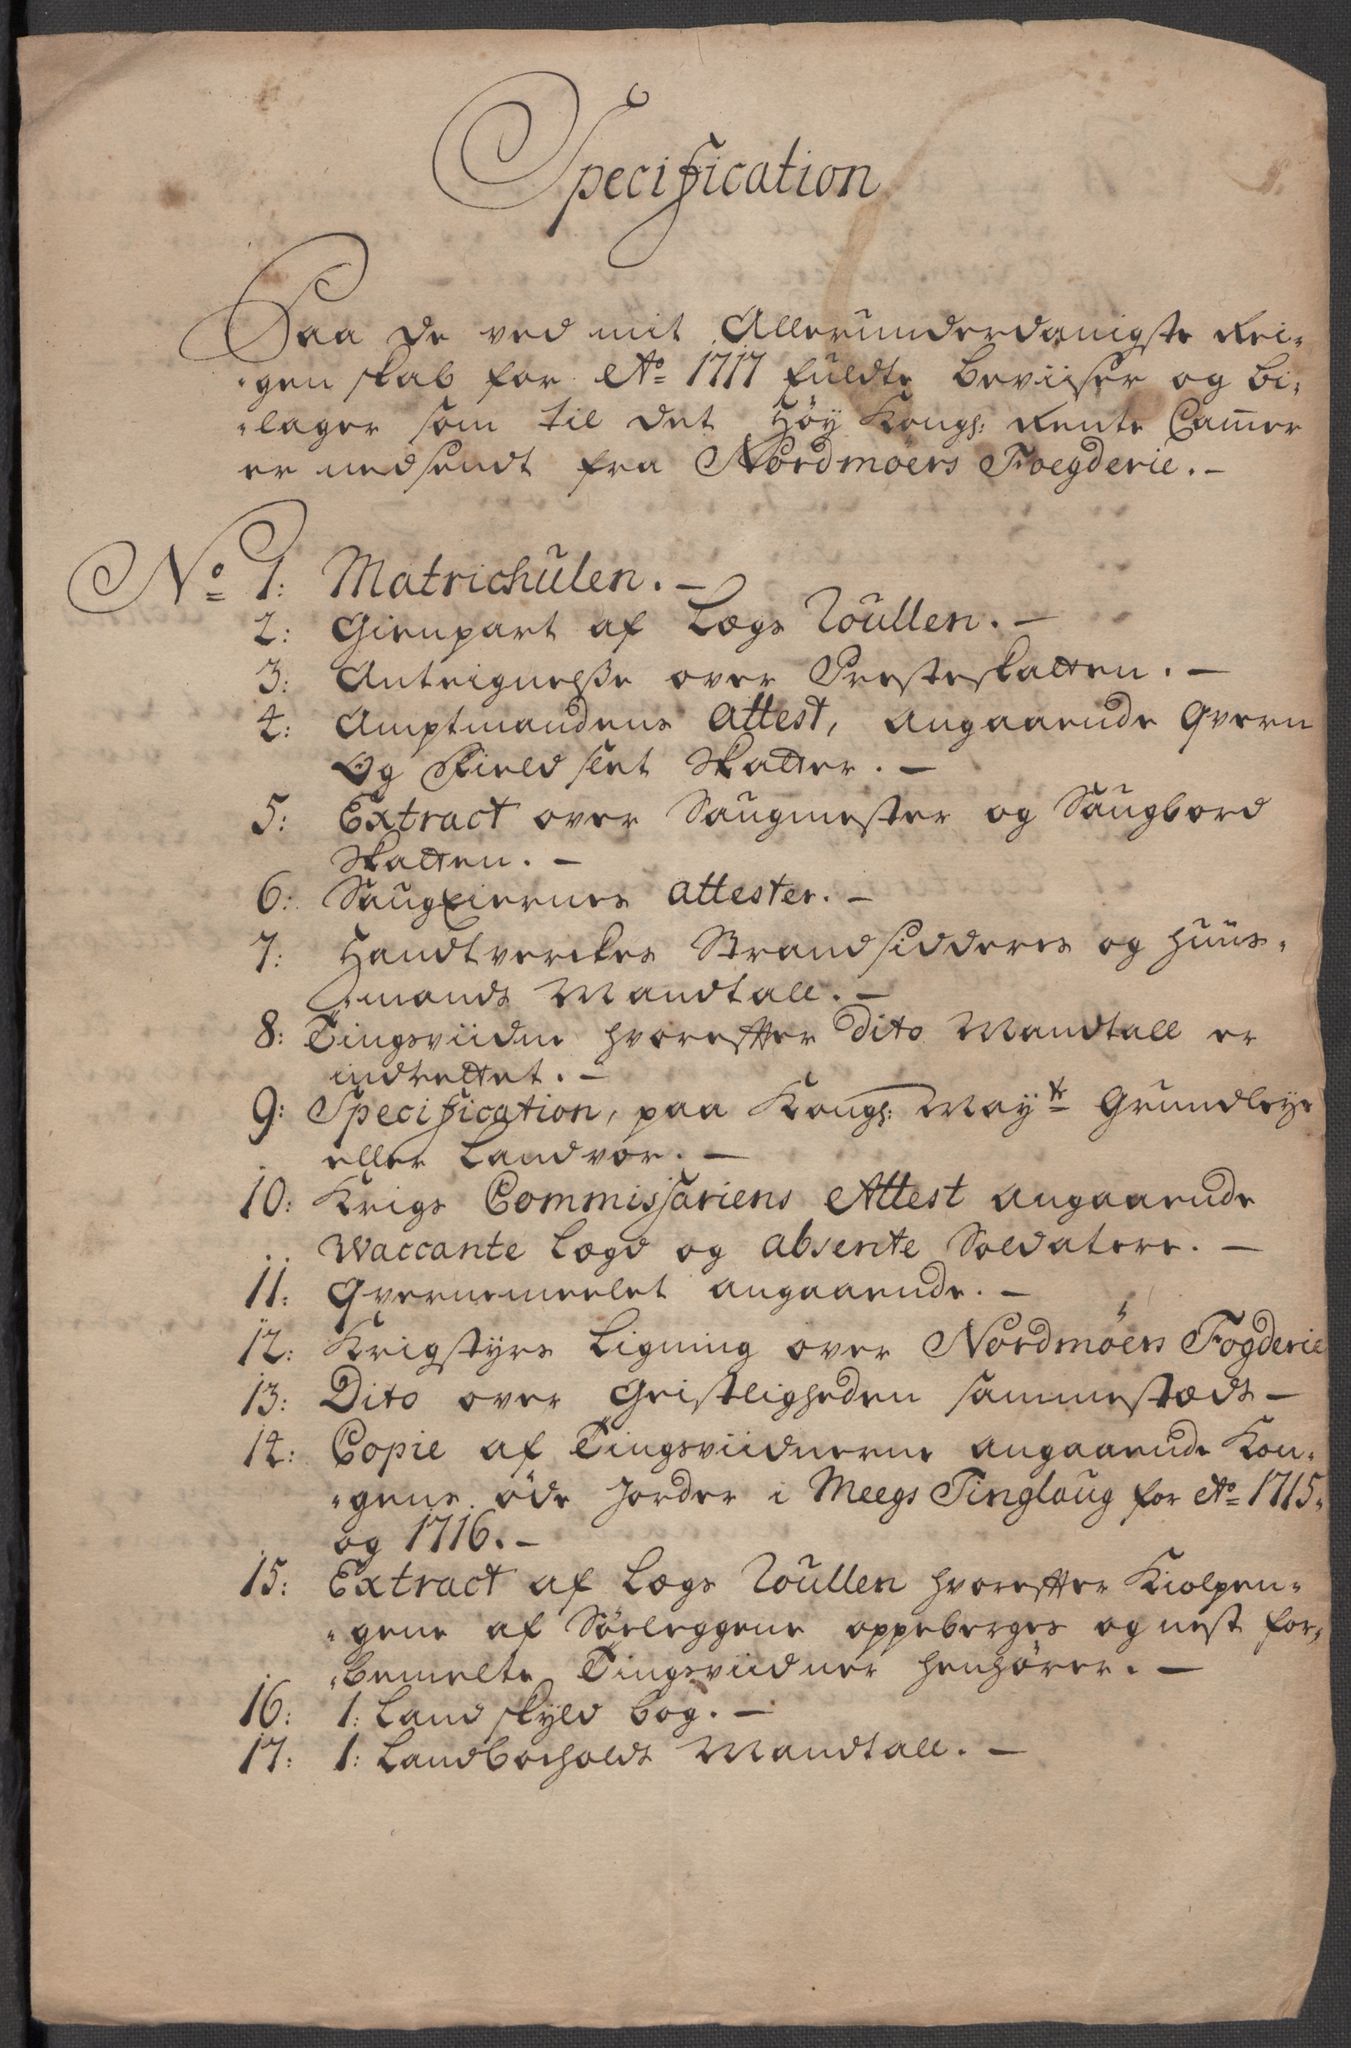 Specification
Paa de ved mit Allerunderdanigste Rei-
-genskab for Ao 1717 fuldte beviiser og bi-
-lager som til det Höy Kongl: Rente Cam̅er
er nedsendt fra Nordmöers Foegderie. -
No 1: Matrichulen. -
2: Gienpart af Lægs Roullen. -
3: Anteignelsse over Presteskatten. -
4: Amptmandens Attest, angaaende Qvern
Og Fieldslet Skatter. -
5: Extract over Saugmester og Saugbord
Skatten. -
6: Saugeiernes attester. -
7: Handtverckes Strandsidderes og huus-
-mands Mandtall. -
8: Tingsviidne hvorefter Dito Mandtall er
indrettet. -
9: Specification, paa Kongl: Mayts Grundleye
eller Landvor. -
10: Krigs Commissariens Attest angaaende
Waccante Lægd og absente Soldatere. -
11: Qvernemeelet angaaende. -
12: Krigstyrs Ligning over Nordmöers Fogderie
13: Dito over Geistligheden sammestæds -
14: Copie af Tingsviidnerne angaaende Kon-
-gens öde Jorder i Meegs Tinglaug for Ao 1715-
og 1716. -
15: Extract af Lægs Roullen hvorefter Kiolpen-
-gene af Söeleggene oppeberges og nest for-
-bemelte Tingsviidner henhörer. -
16: 1: Landskyld bog. -
17: 1: Landbocholds Mandtall. -